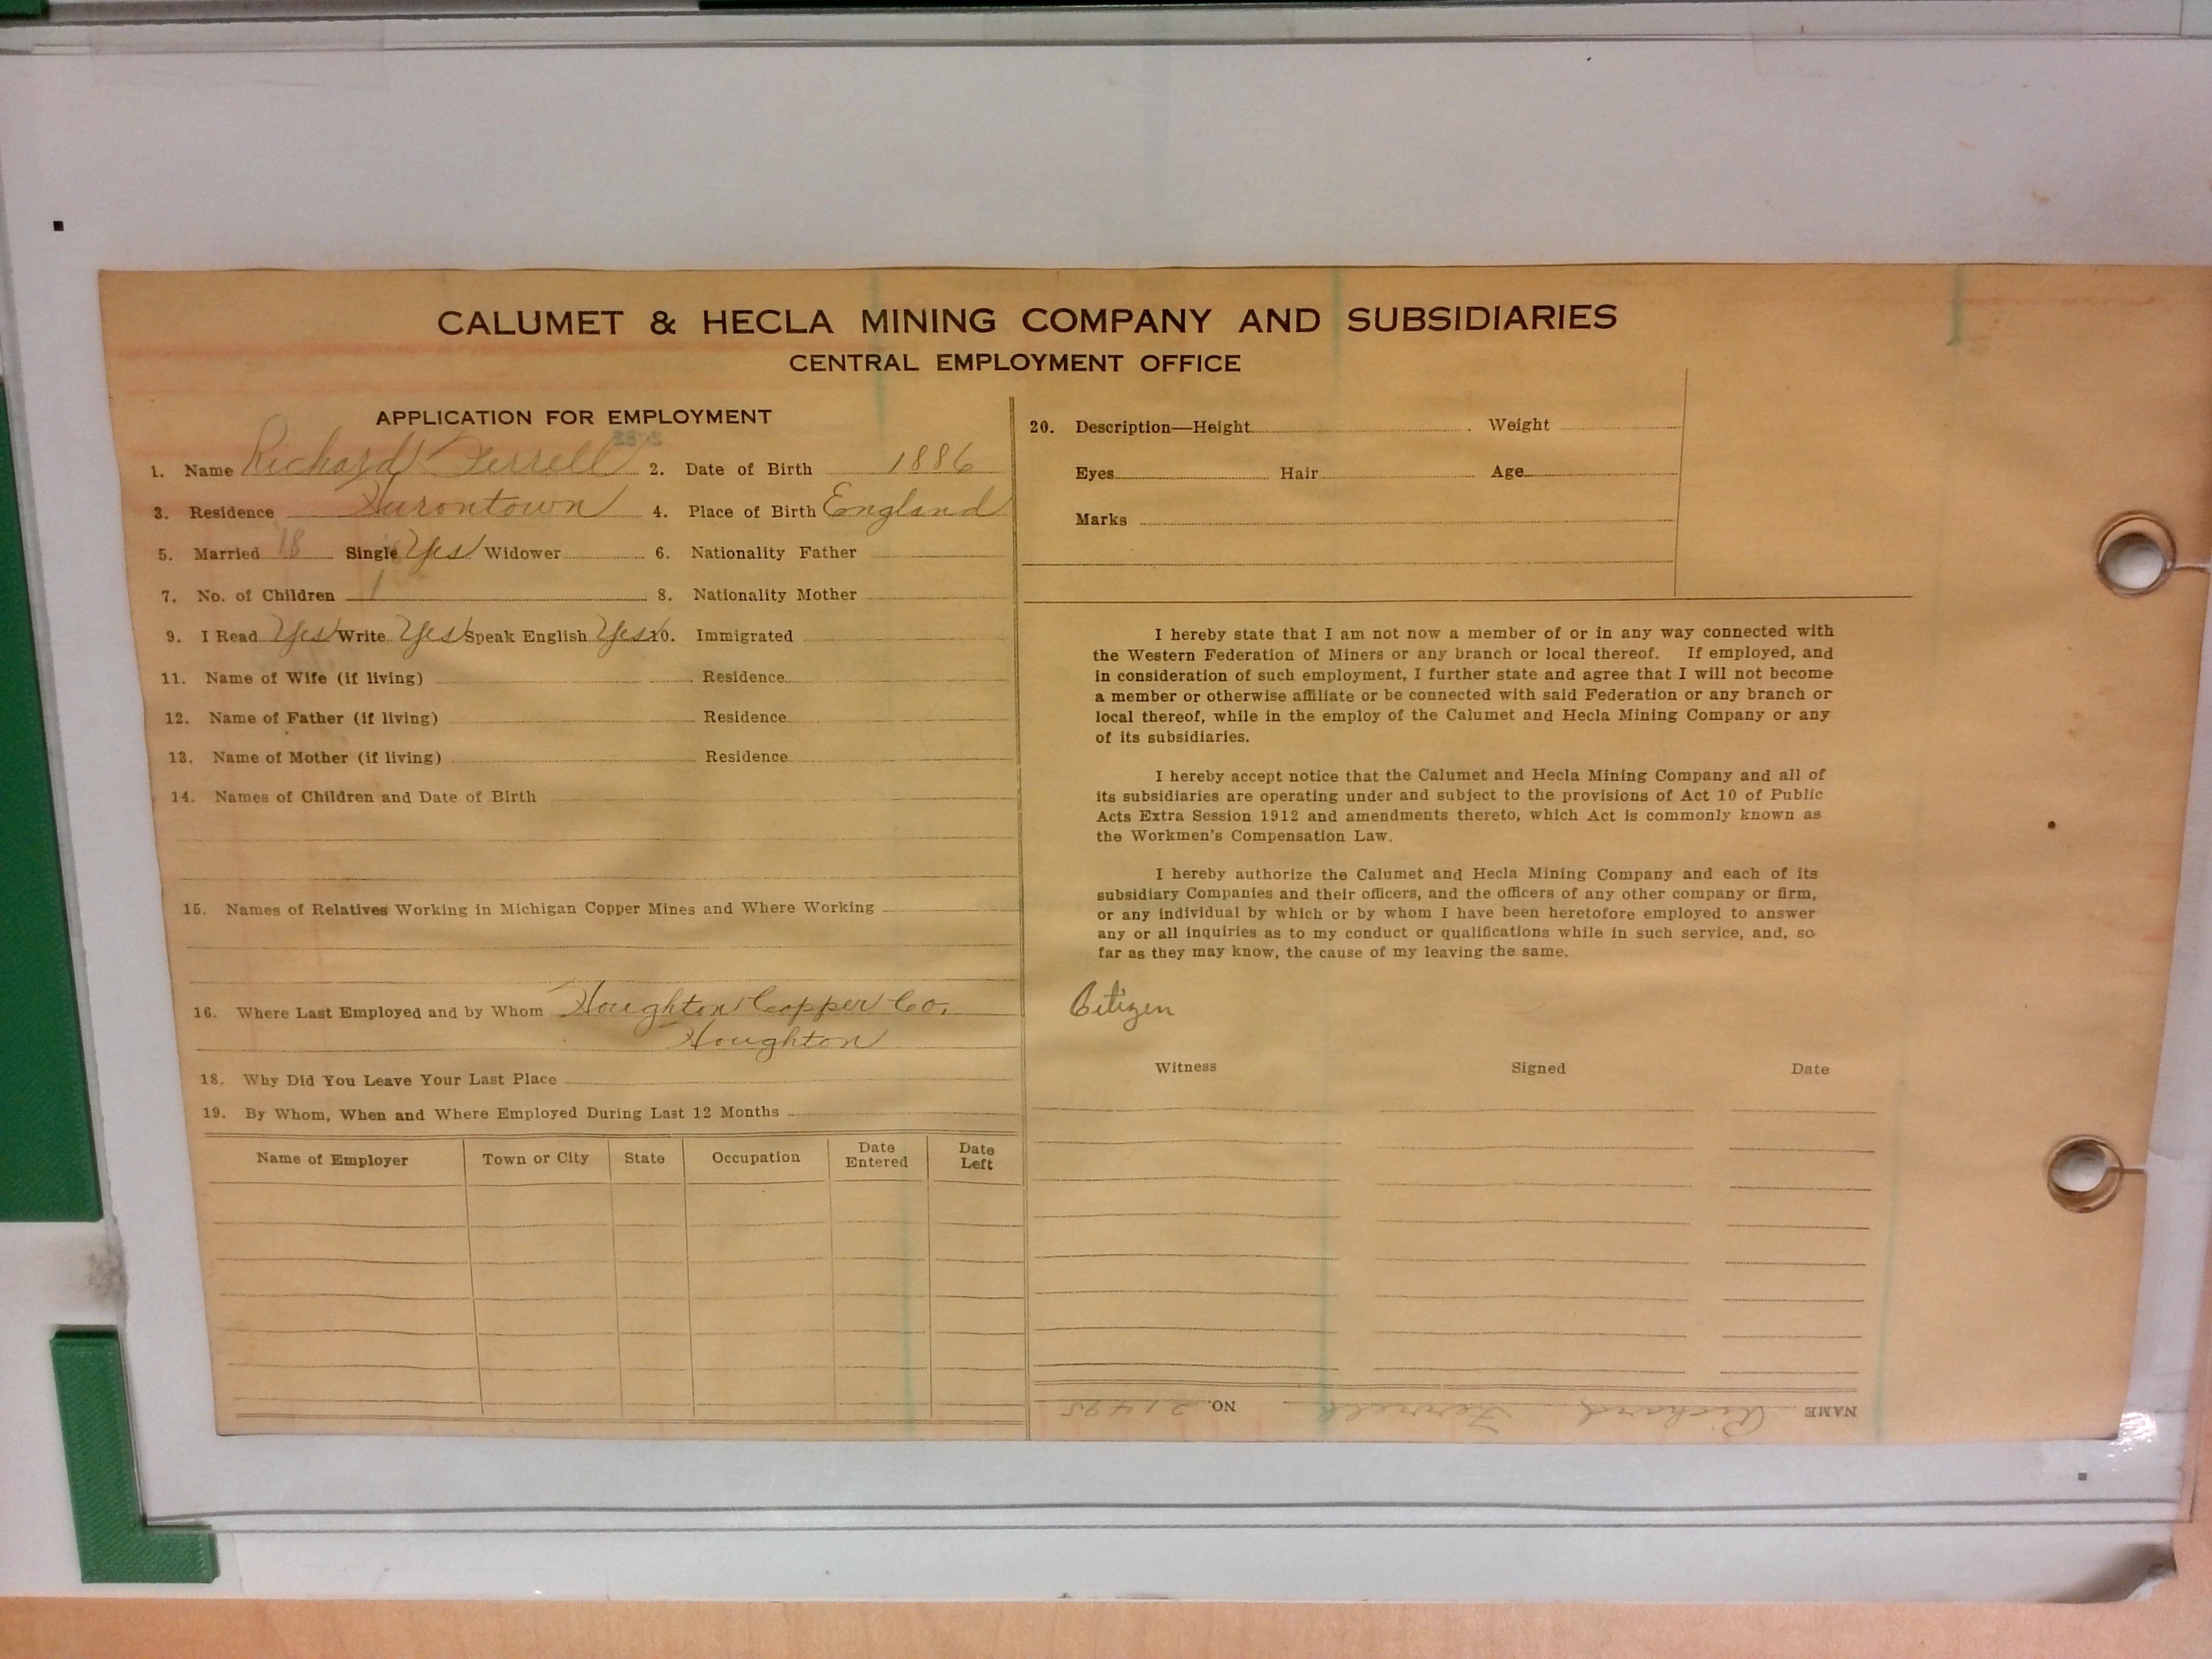 CALUMET & HECLA MINING COMPANY AND SUBSIDIARIES
CENTRAL EMPLOYMENT OFFICE
APPLICATION FOR EMPLOYMENT
1. Name Richard Ferrell 2. Date of Birth 1886
3. Residence Hurontown 4. Place of Birth England
5. Married 18 Single Yes Widower 6. Nationality Father
7. No. of Children 1 8. Nationality Mother
9. I Read Yes Write Yes Speak English Yes 10. Immigrated
11. Name of Wife (if living) Residence
12. Name of Father (if living) Residence
13. Name of Mother (if living) Residence
14. Names of Children and Date of Birth
15. Names of Relatives Working in Michigan Copper Mines and Where Working
16. Where Last Employed and by Whom Houghton Copper Co.
Houghton
18. Why Did You Leave Your Last Place
19. By Whom, When and Where Employed During Last 12 Months
Name of Employer Town or City State Occupation Date Entered Date Left
20. Description—Height Weight
Eyes Hair Age
Marks
I hereby state that I am not now a member of or in any way connected with
the Western Federation of Miners or any branch or local thereof. If employed, and
in consideration of such employment, I further state and agree that I will not become
a member or otherwise affiliate or be connected with said Federation or any branch or
local thereof, while in the employ of the Calumet and Hecla Mining Company or any
of its subsidiaries.
I hereby accept notice that the Calumet and Hecla Mining Company and all of
its subsidiaries are operating under and subject to the provisions of Act 10 of Public
Acts Extra Session 1912 and amendments thereto, which Act is commonly known as
the Workmen's Compensation Law.
I hereby authorize the Calumet and Hecla Mining Company and each of its
subsidiary Companies and their officers, and the officers of any other company or firm,
or any individual by which or by whom I have been heretofore employed to answer
any or all inquiries as to my conduct or qualifications while in such service, and, so
far as they may know, the cause of my leaving the same.
Citizen
Witness Signed Date
NAME Richard Ferrell NO. 21495